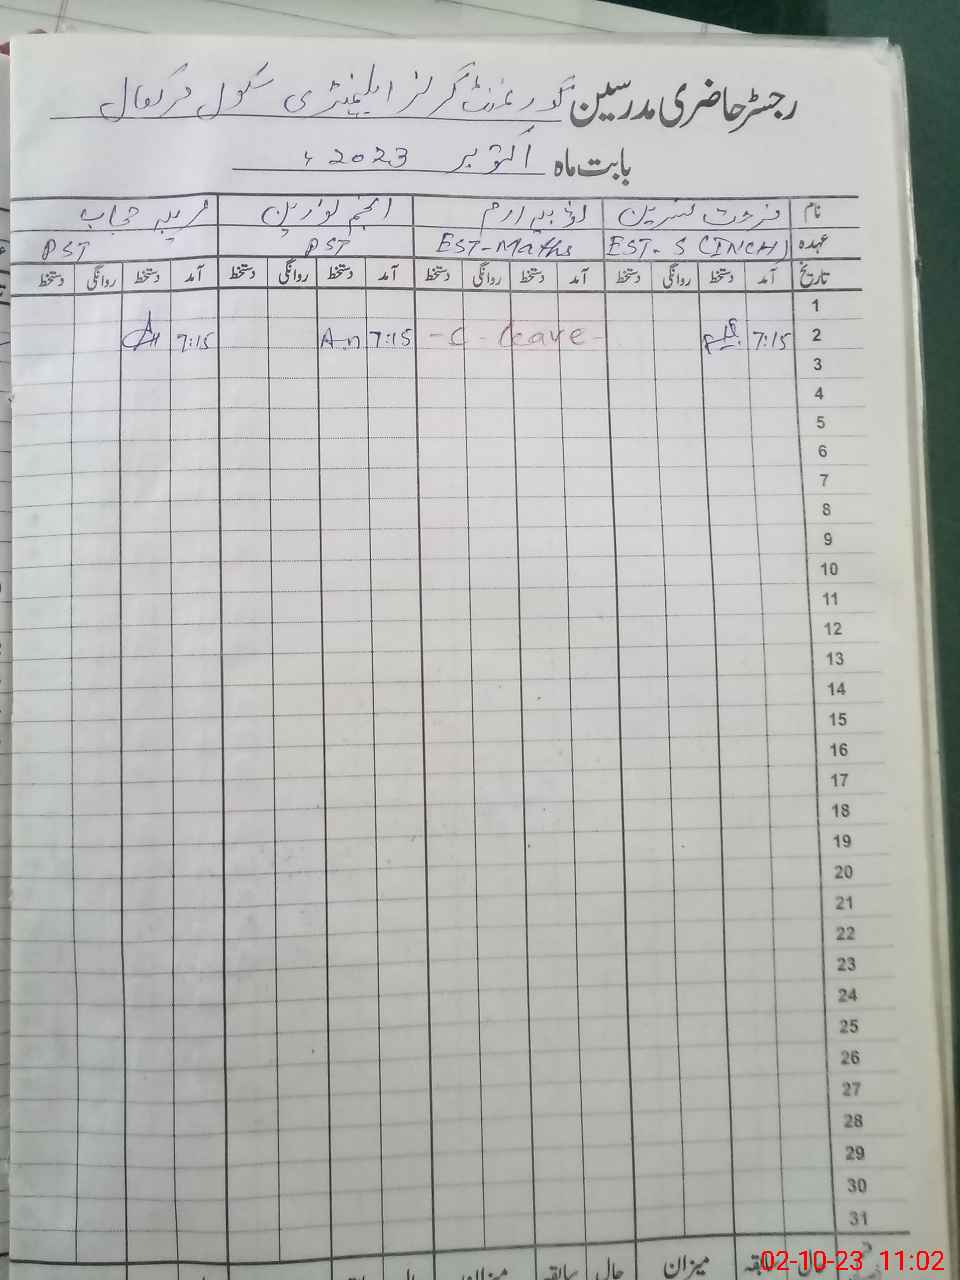 رجسٹر حاضری مدرسین گورنمنٹ گرلز ایلیمنٹری سکول
بابت ماہ اکتوبر 2023 ء
نام فرحت نسرین ارم انجم نورین حجاب
عہدہ EST-S (INCH) EST-Maths PST PST
تاریخ آمد دستخط روانگی دستخط آمد دستخط روانگی دستخط آمد دستخط روانگی دستخط آمد دستخط روانگی دستخط
1
2 7:15 - C - Leave - 7:15 An 7:15
3
4
5
6
7
8
9
10
11
12
13
14
15
16
17
18
19
20
21
22
23
24
25
26
27
28
29
30
31
حال سابقہ میزان حال سابقہ میزان
02-10-23 11:02